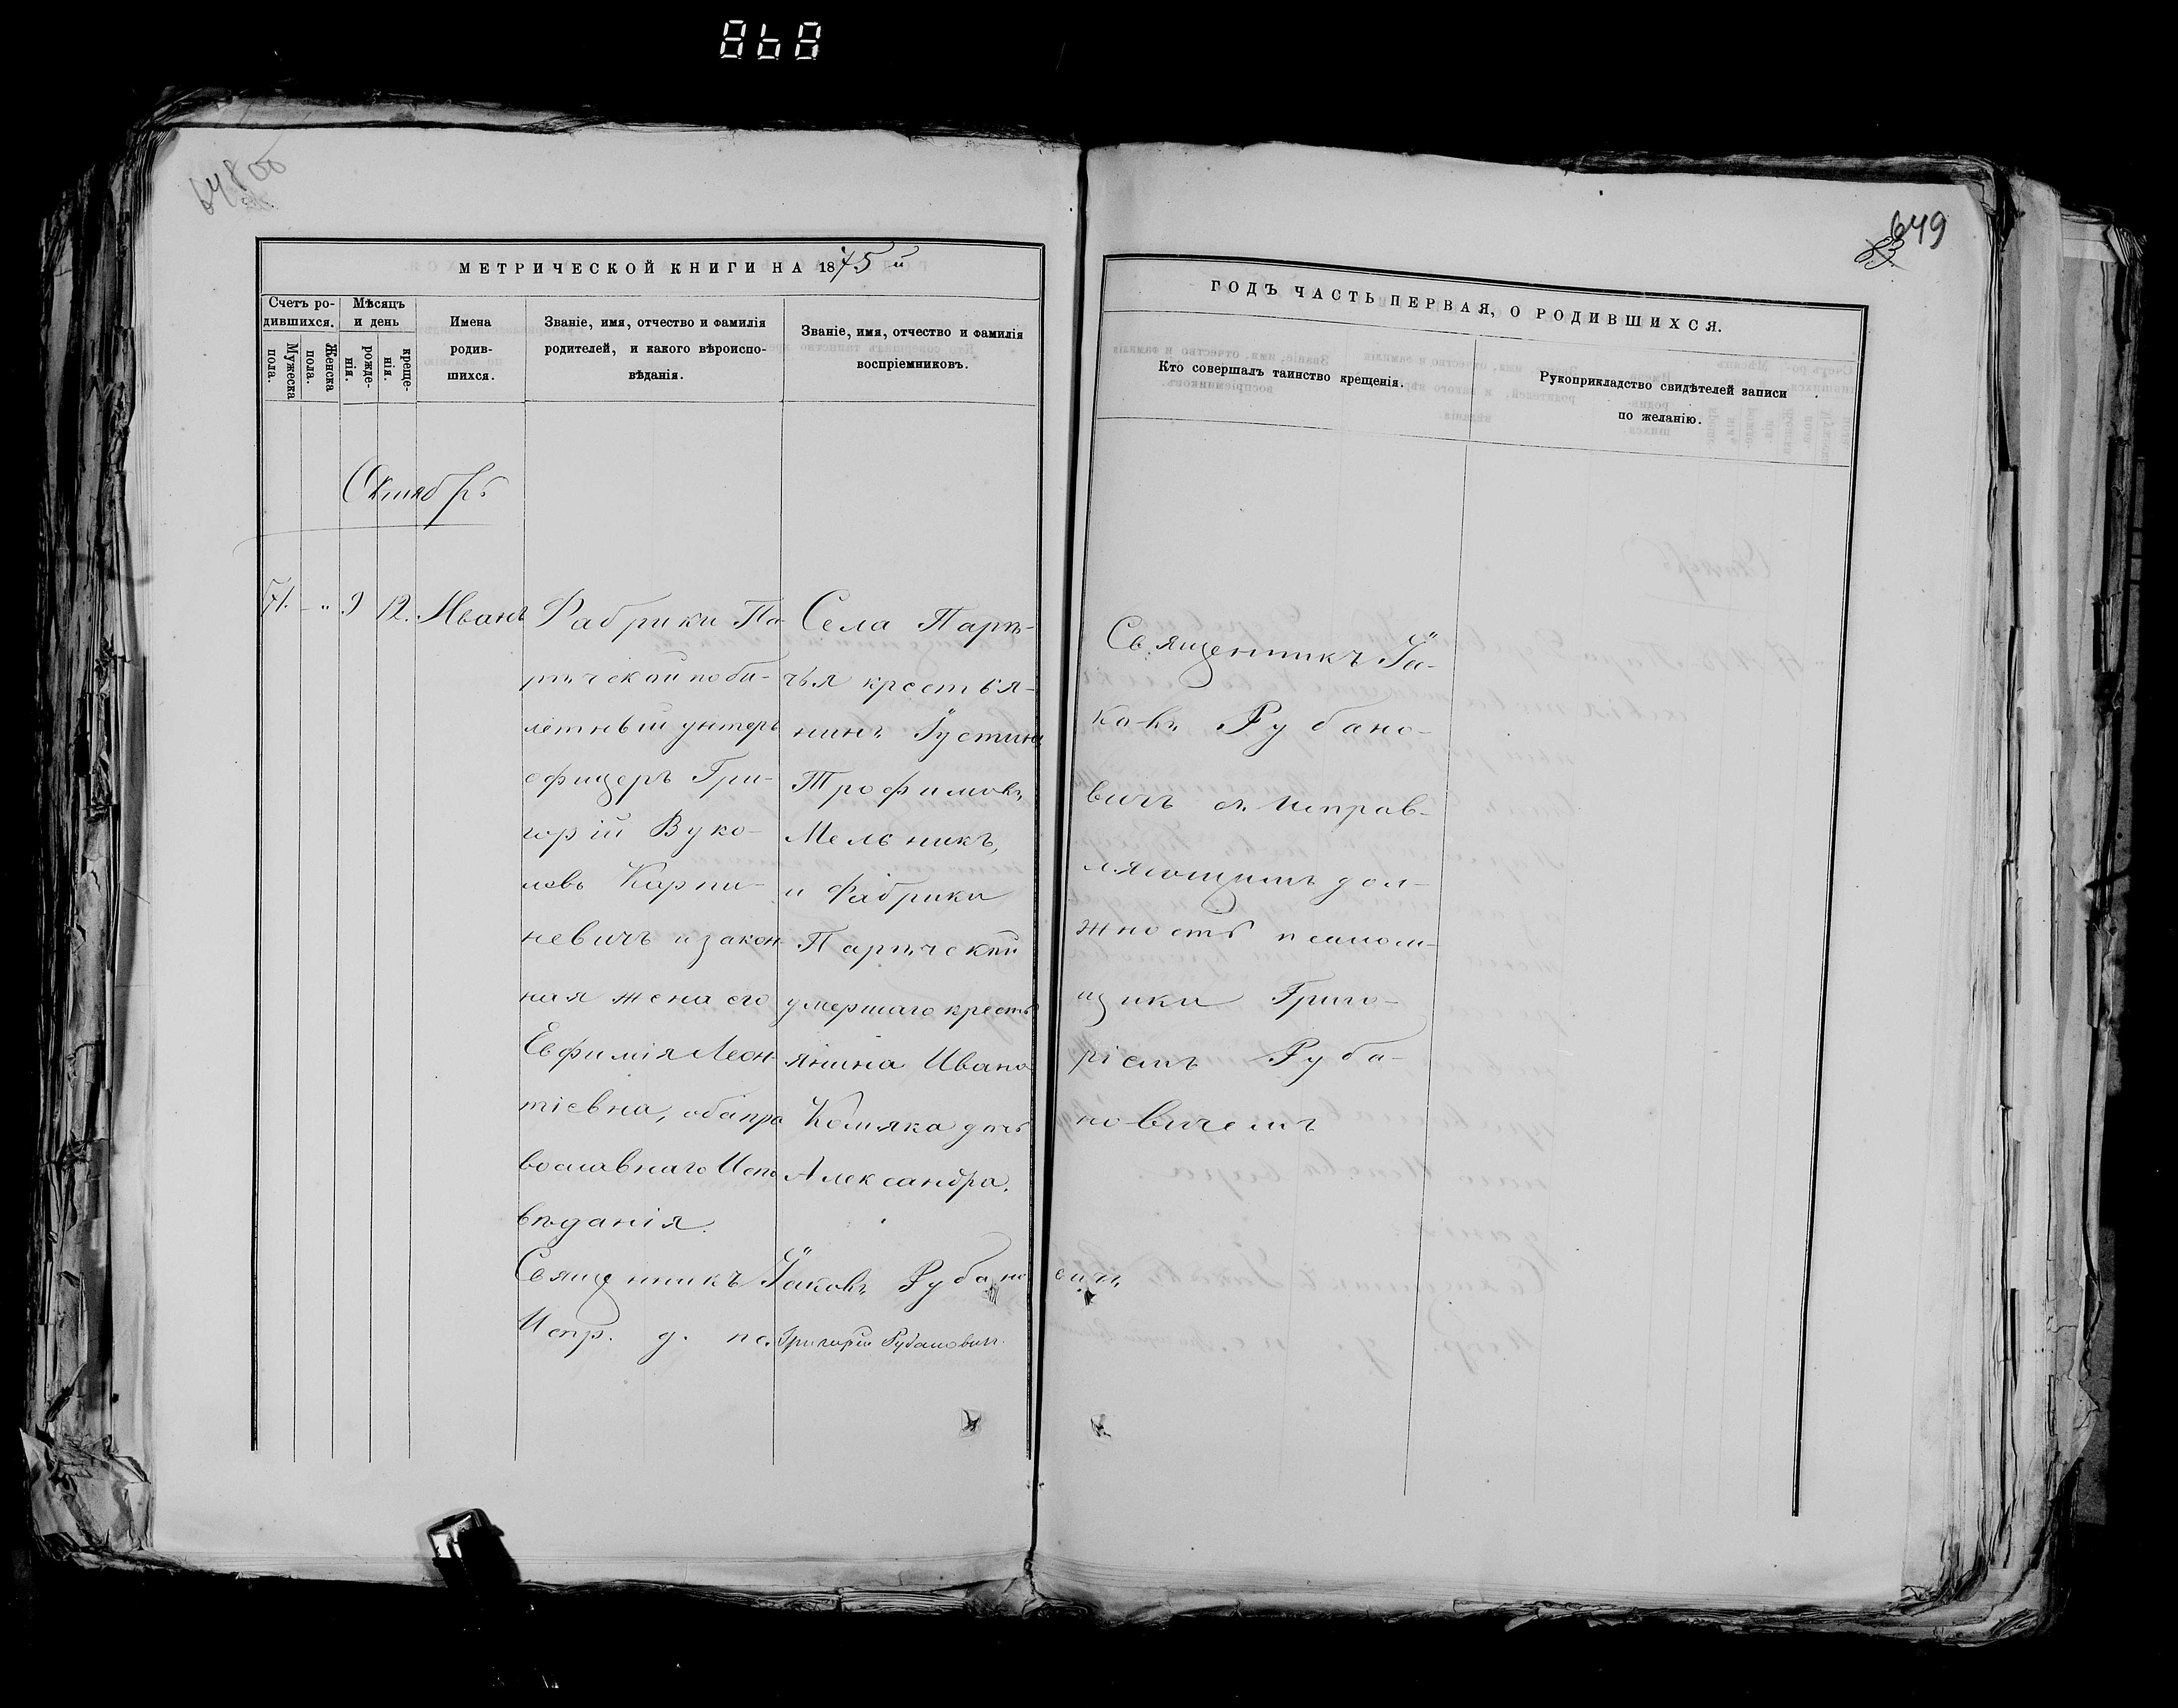 868
649
83
МЕТРИЧЕСКОЙ КНИГИ НА 1875й
ГОДЪ ЧАСТЬ ПЕРВАЯ, О РОДИВШИХСЯ.
Счетъ ро-
дившихся.
Мужеска
пола.
Женска
пола.
Мѣсяцъ
и день
рожде-
нія.
креще-
нія.
Имена
родив-
шихся.
Званіе, имя, отчество и фамилія
родителей, и какого вѣроиспо-
вѣданія.
Званіе, имя, отчество и фамилія
воспріемниковъ.
Кто совершалъ таинство крещенія.
Рукоприкладство свидѣтелей записи
по желанію.
Октябрь
71. - " 9 12. Иванъ
Фабрики Па-
рѣческой поби-
летный унтеръ
офицеръ Гри-
горій Вуко-
ловъ Карпи-
невичъ и закон-
ная жена его
Евфимія Леон-
тіевна, оба пра
вославнаго Испо
вѣданія.
Села Парѣ-
чья крестья-
нинъ Іустинъ
Трофимовъ
Мельникъ,
и Фабрики
Парѣческой
умершаго кресть
янина Ивана
Комяка дочь
Александра.
Священникъ Іа-
ковъ Рубано-
вичъ съ Исправ-
ляющимъ дол-
жность псаломщ-
щика Григо-
ріемъ Руба-
новичемъ
Священникъ Іаковъ Рубановичъ
Испр. д. пс. Григорій Рубановичъ.